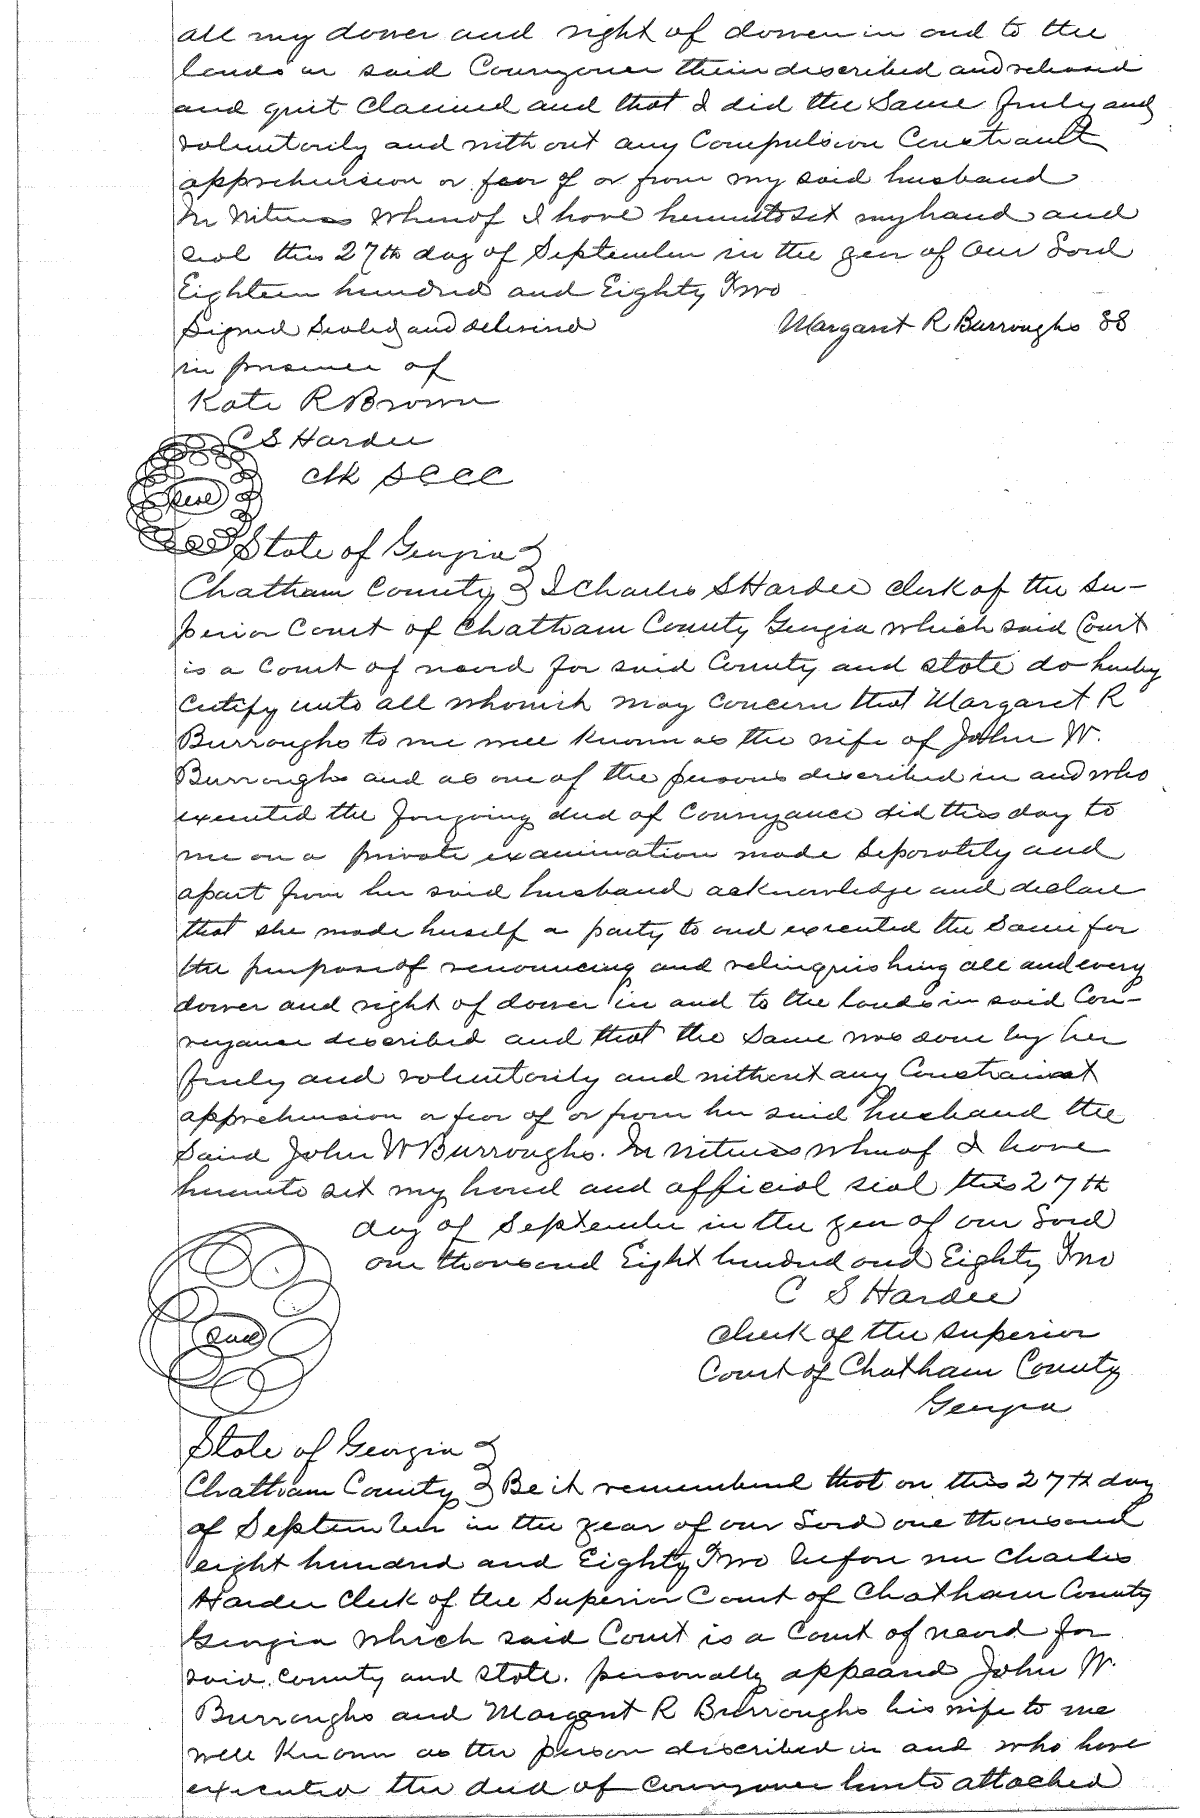 all my dower and right of dower in and to the
lands in said Conveyance therein described and released
and quit Claimed and that I did the Same freely and
voluntarily and without any Compulsion Constraint
apprehension or fear of or from my said husband
In Witness Whereof I have hereunto set my hand and
seal this 27th day of September in the year of Our Lord
Eighteen hundred and Eighty Two
Signed Sealed and delivered Margaret R Burroughs SS
in presence of
Kate R Brown
C S Hardee
Clk S C C C
Seal
State of Georgia }
Chatham County } I Charles S Hardee Clerk of the Su-
perior Court of Chatham County Georgia which said Court
is a Court of record for said County and State do hereby
Certify unto all whom it may Concern that Margaret R
Burroughs to me well known as the wife of John W.
Burroughs and as one of the persons described in and who
executed the foregoing deed of Conveyance did this day to
me on a private examination made Seperately and
apart from her said husband acknowledge and declare
that she made herself a party to and executed the Same for
the purpose of renouncing and relinquishing all and every
dower and right of dower in and to the lands in said Con-
veyance described and that the Same was done by her
freely and voluntarily and without any Constraint
apprehension or fear of or from her said husband the
Said John W Burroughs. In Witness whereof I have
hereunto set my hand and official seal this 27th
day of September in the year of our Lord
one thousand Eight hundred and Eighty Two
C S Hardee
Seal
Clerk of the Superior
Court of Chatham County
Georgia
State of Georgia }
Chatham County } Be it remembered that on this 27th day
of September in the year of our Lord one thousand
eight hundred and Eighty Two before me Charles
Hardee Clerk of the Superior Court of Chatham County
Georgia which said Court is a Court of record for
said County and State. personally appeared John W.
Burroughs and Margaret R Burroughs his wife to me
well Known as the person described in and who have
executed the deed of Conveyance hereto attached